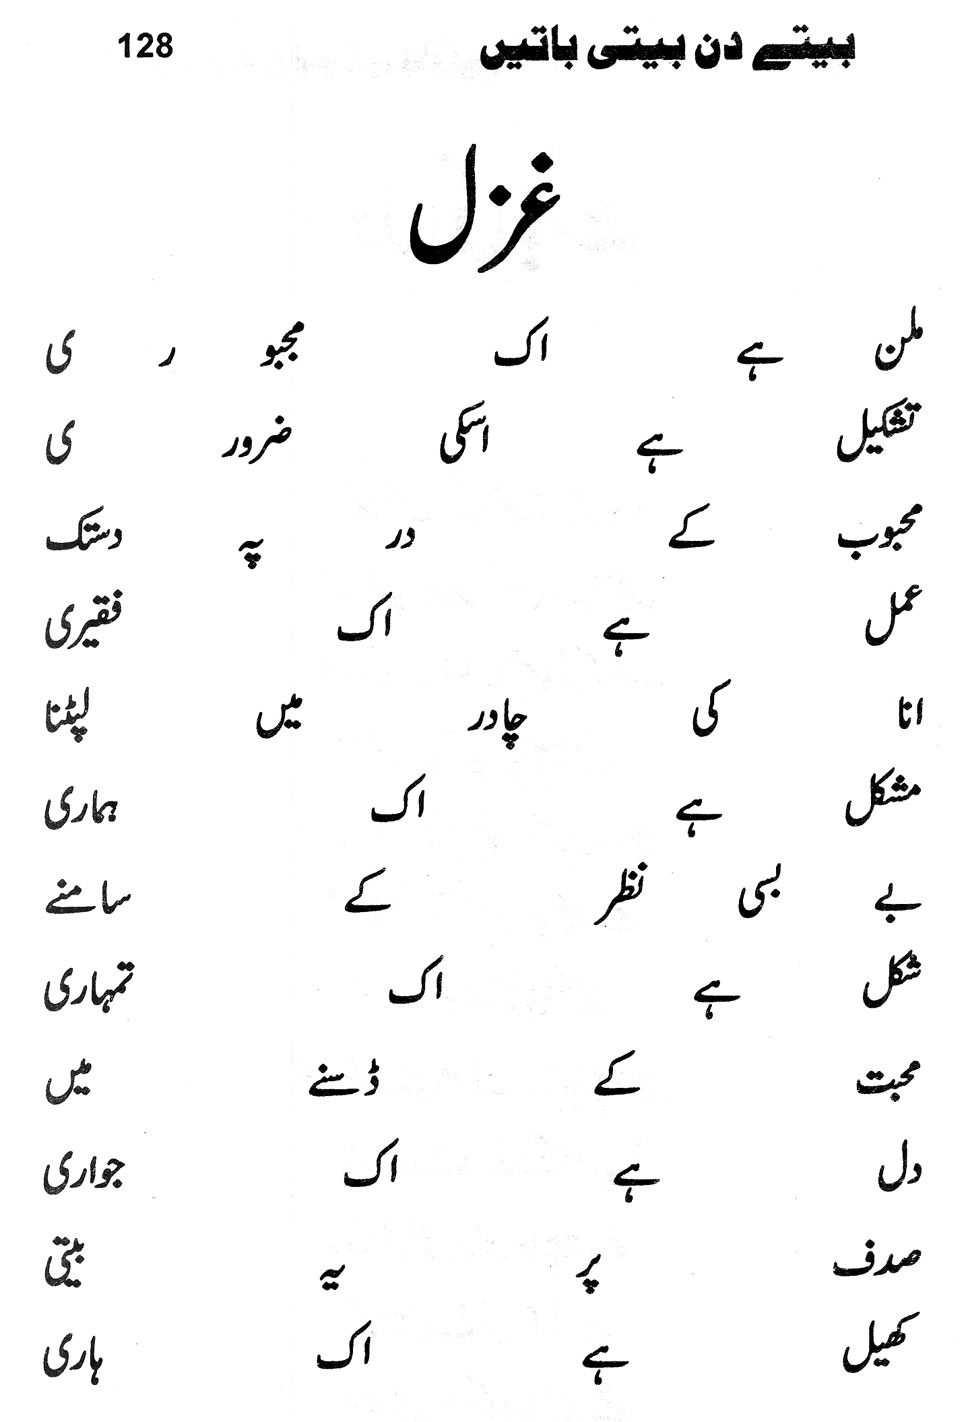 بیتے دن بیتی باتیں 128
غزل
ملن ہے اک مجبو ر ی
تشکیل ہے اسکی ضرور ی
محبوب کے در پہ دستک
عمل ہے اک فقیری
انا کی چادر میں لپٹنا
مشکل ہے اک ہماری
بے بسی نظر کے سامنے
شکل ہے اک تمہاری
محبت کے ڈسنے میں
دل ہے اک جواری
صدف پر یہ بیتی
کھیل ہے اک ہاری